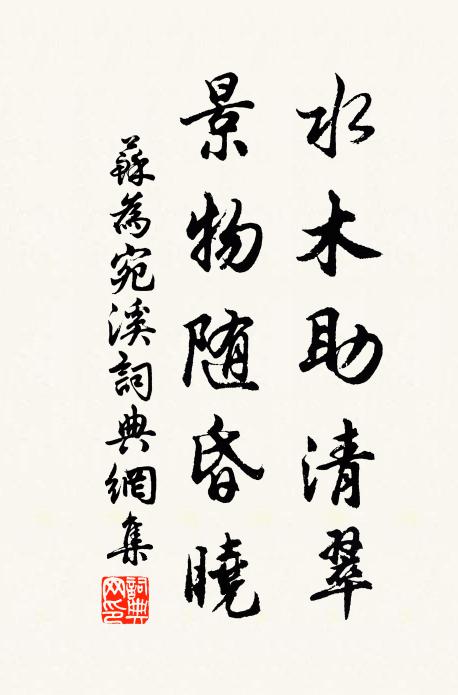 水木助清翠
景物随昏曉
蘇為宛溪詞典網集
詞典網印